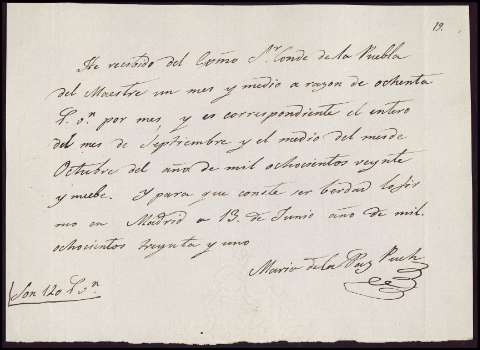 19.
He recibido del Exmo Sr. Conde de la Puebla
del Maestre un mes y medio a razon de ochenta
Rs. on. por mes, y es correspondiente el entero
del mes de Septiembre y el medio del mes de
Octubre del año de mil ochocientos veynte
y nuebe. Y para que conste ser berdad lo fir
mo en Madrid a 13. de Junio año de mil.
ochocientos treynta y uno
Maria de la Paz Puch
Son 120 Rs. on.